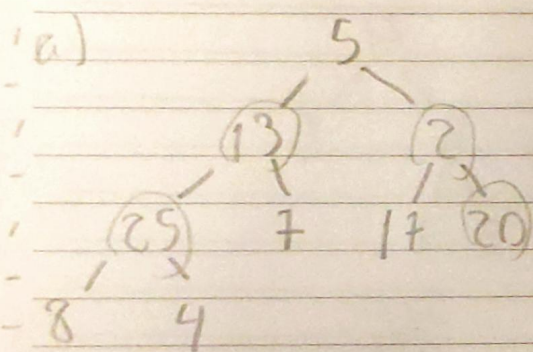 a) 5
13 2
25 7 17 20
8 4